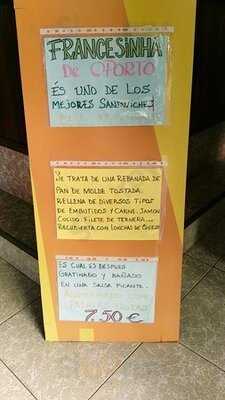 FRANCESINHA
DE OPORTO
ÉS UNO DE LOS
MEJORES SANDWICHES
SE TRATA DE UNA REBANADA DE
PAN DE MOLDE TOSTADA.
RELLENA DE DIVERSOS TIPOS
DE EMBUTIDOS Y CARNE. JAMON
COCIDO. FILETE DE TERNERA...
RECUBIERTA CON LONCHAS DE QUESO
ES CUAL ES DESPUES
GRATINADO Y BAÑADO
EN UNA SALSA PICANTE.
ACOMPAÑADO CON
PATATAS FRITAS
7,50 €